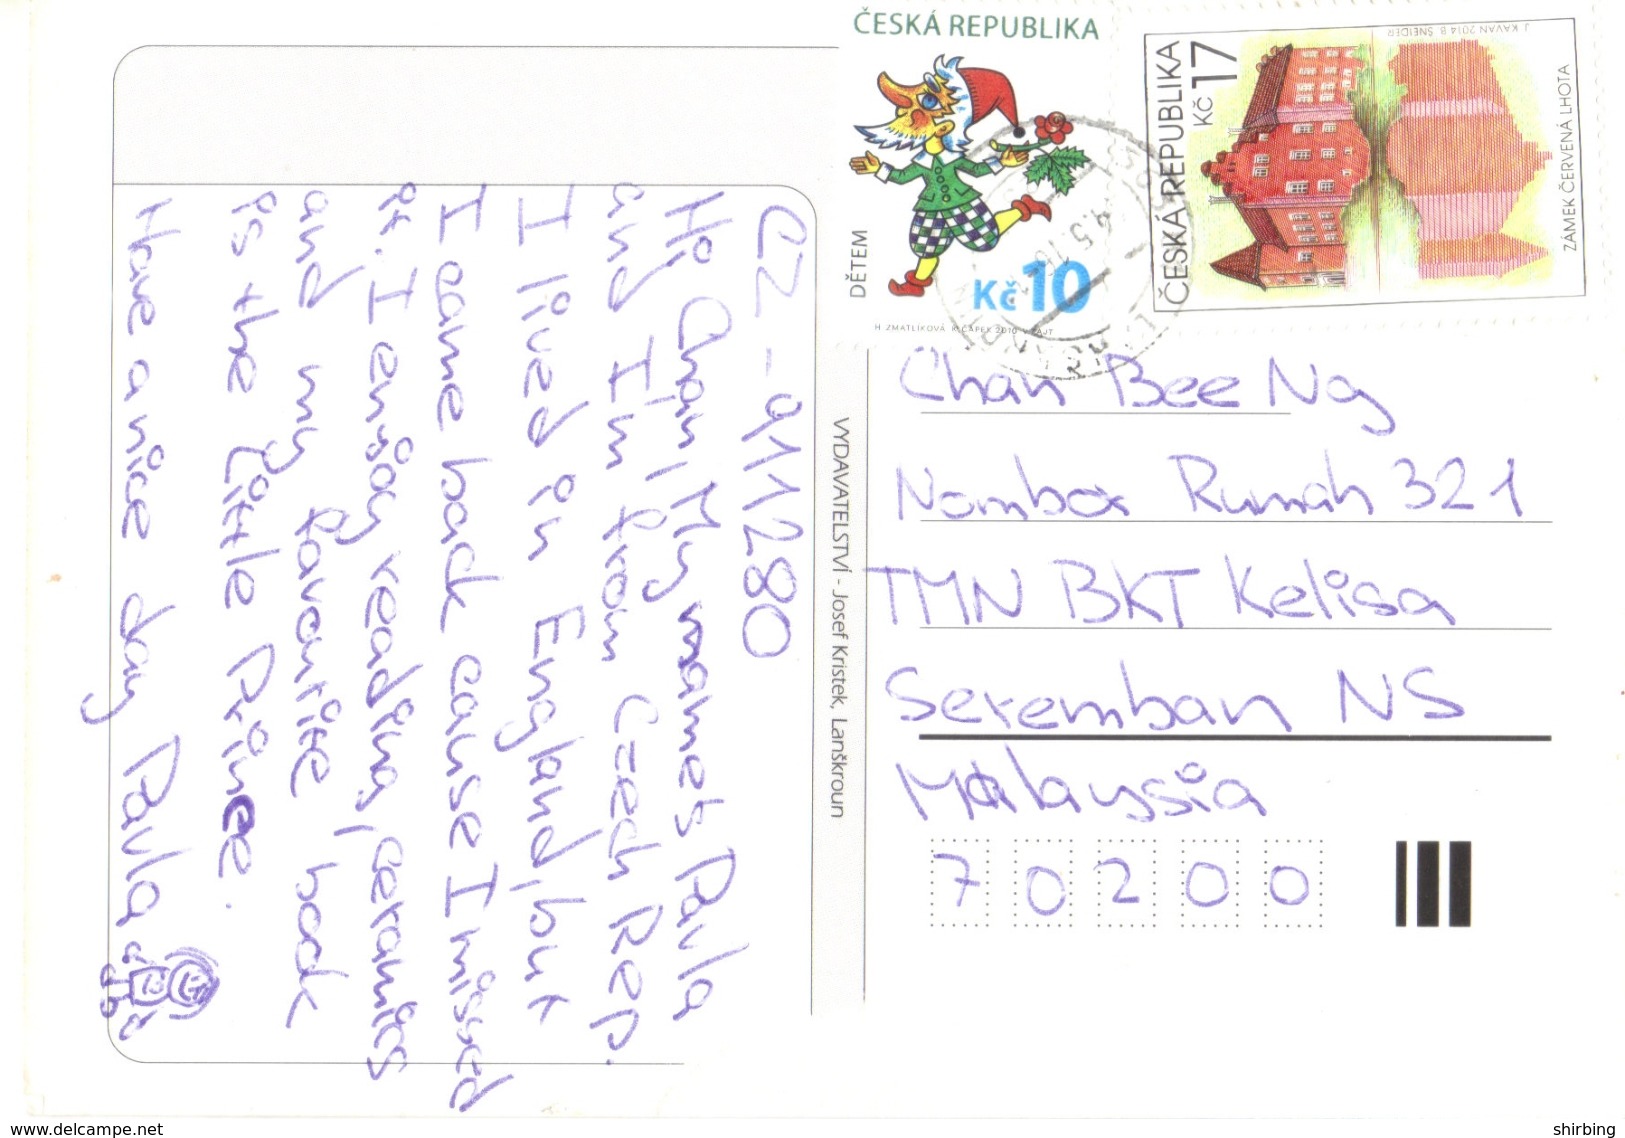 CZ-911280
Hi Chan! My name's Pavla
and I'm from Czech Rep.
I lived in England, but
I came back cause I missed
it. I enjoy reading, ceramics
and my favourite book
is the Little Prince.
Have a nice day Pavla
VYDAVATELSTVÍ - Josef Kristek, Lanškroun
ČESKÁ REPUBLIKA
DĚTEM
Kč 10
H. ZMATLÍKOVÁ R. ČAPEK 2010 V. FAJT
ČESKÁ REPUBLIKA
Kč 17
ZÁMEK ČERVENÁ LHOTA
J. KAVAN 2014 B. ŠNEIDER
Chan Bee Ng
Nombor Rumah 321
TMN BKT Kelisa
Seremban NS
Malaysia
70200
www.delcampe.net
shirbing